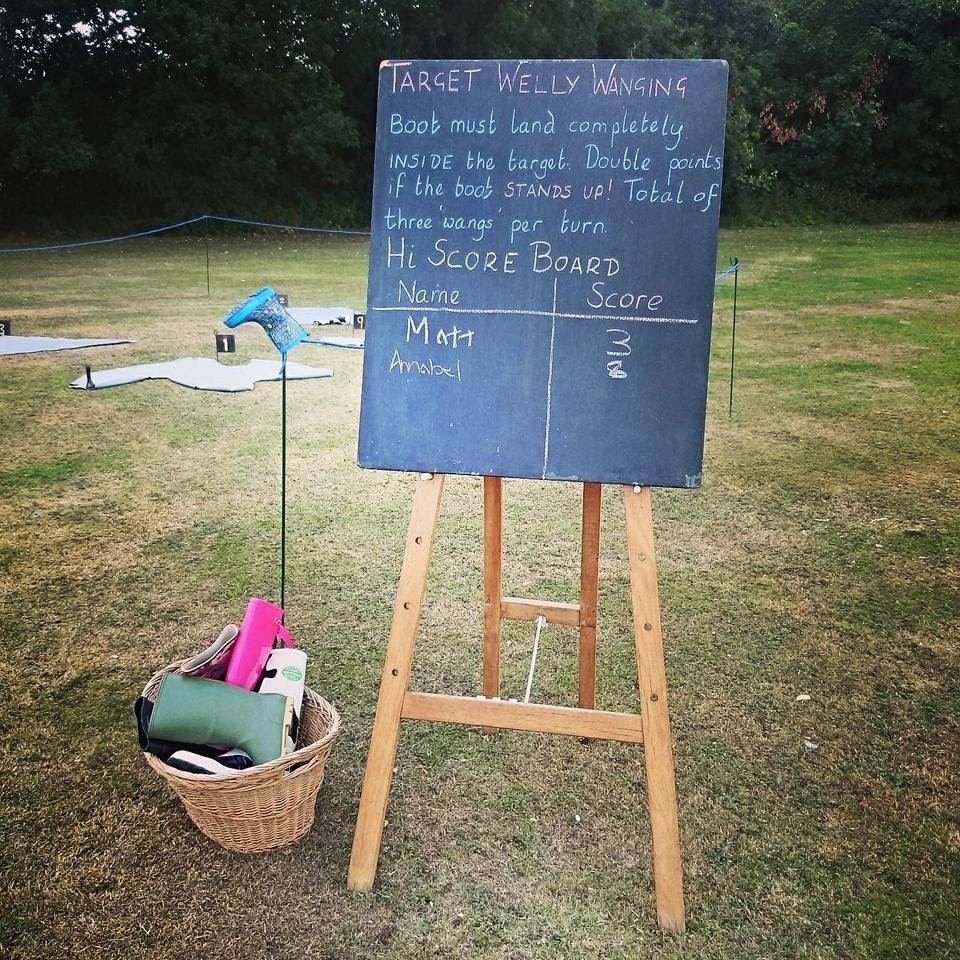 TARGET WELLY WANGING
Boot must land completely
INSIDE the target. Double points
if the boot STANDS UP! Total of
three 'wangs' per turn.
Hi SCORE BOARD
Name Score
Matt 3
Annabel
3
2
1
9